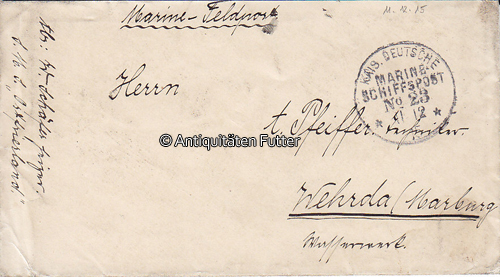 Marine-Feldpost
11.12.15
KAIS. DEUTSCHE
MARINE-
SCHIFFSPOST
No 23
11 12
Herrn
t. Pfeiffer. Techniker.
© Antiquitäten Futter
Wehrda/Marburg
Wasserwerk.
Abs:
S.M.S.